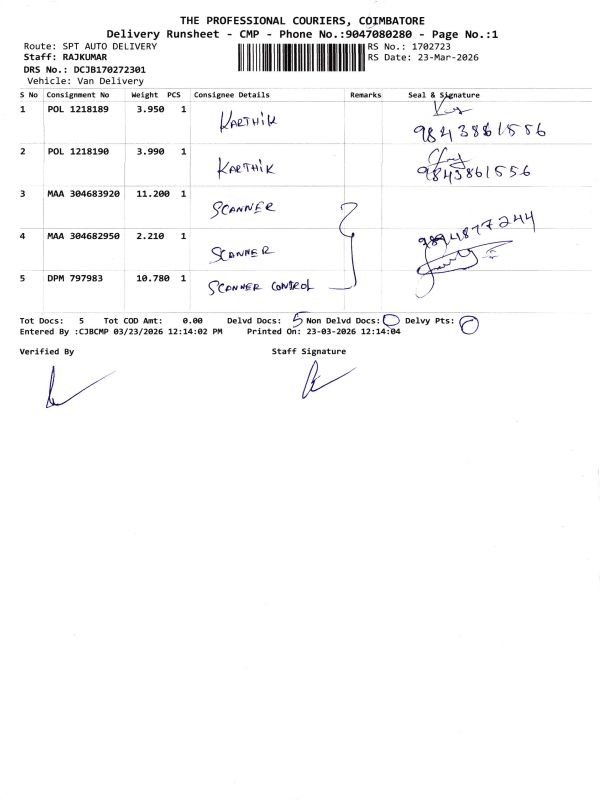 THE PROFESSIONAL COURIERS, COIMBATORE
Delivery Runsheet - CMP - Phone No.:9047080280 - Page No.:1
Route: SPT AUTO DELIVERY RS No.: 1702723
Staff: RAJKUMAR RS Date: 23-Mar-2026
DRS No.: DCJB170272301
Vehicle: Van Delivery
S No Consignment No Weight PCS Consignee Details Remarks Seal & Signature
1 POL 1218189 3.950 1 KARTHIK 9843861556
2 POL 1218190 3.990 1 KARTHIK 9843861556
3 MAA 304683920 11.200 1 SCANNER
4 MAA 304682950 2.210 1 SCANNER 9894877244
5 DPM 797983 10.780 1 SCANNER CONTROL
Tot Docs: 5 Tot COD Amt: 0.00 Delvd Docs: 5 Non Delvd Docs: 0 Delvy Pts:
Entered By :CJBCMP 03/23/2026 12:14:02 PM Printed On: 23-03-2026 12:14:04
Verified By Staff Signature